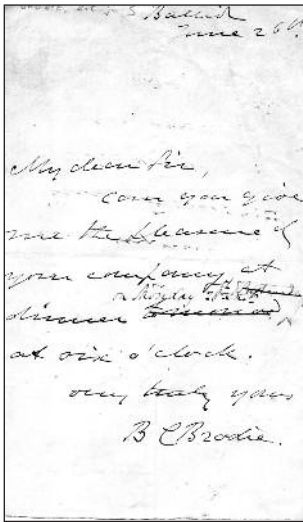 June 26th
My dear Sir,
can you give
me the pleasure of
your company at
dinner
at six o'clock.
very truly yours
B C Brodie.